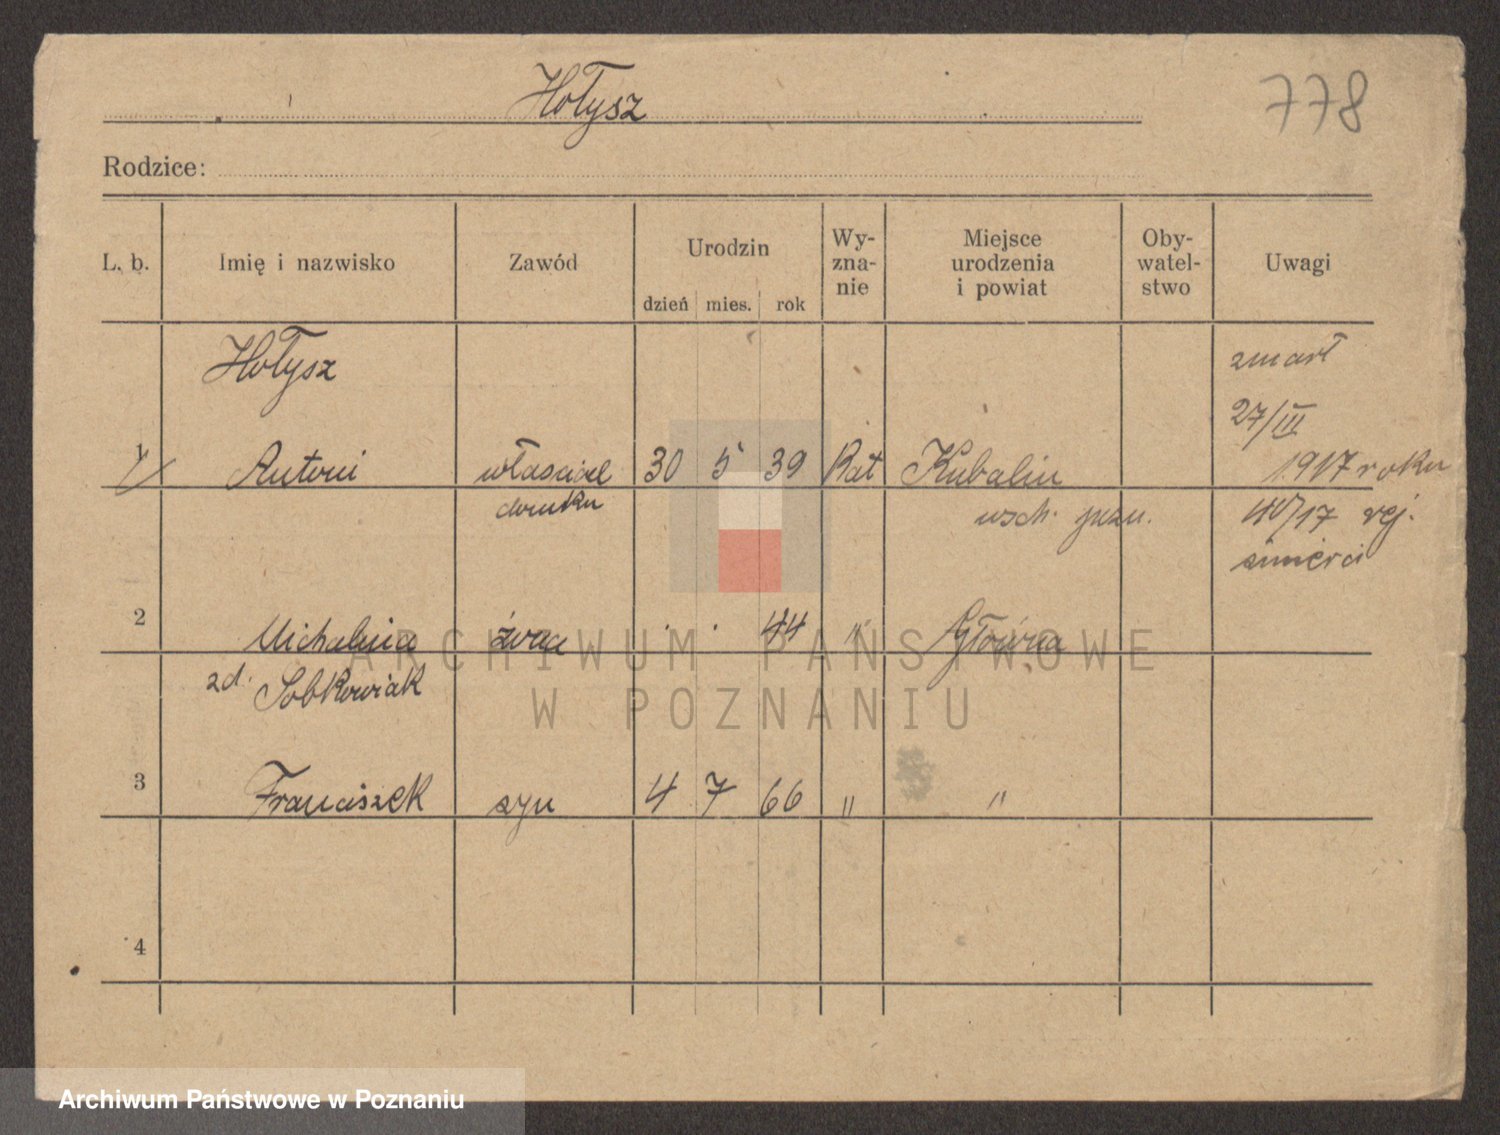 Hołysz
778
Rodzice:
L. b. Imię i nazwisko Zawód Urodzin dzień mies. rok Wy-zna-nie Miejsce urodzenia i powiat Oby-watel-stwo Uwagi
Hołysz zmarł
27/III
1 Antoni właściciel 30 5 39 Kat Kubalin 1917 roku
domku wsch. /17 rej.
śmierci
2 Michalina żona . . 44 " Główna
zd. Sobkowiak
3 Franciszek syn 4 7 66 " "
4
ARCHIWUM PAŃSTWOWE
W POZNANIU
Archiwum Państwowe w Poznaniu